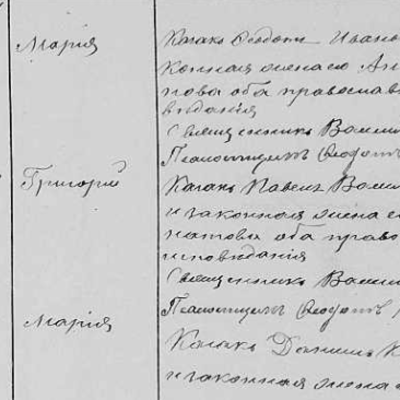 Марія
Казакъ Ѳеодотъ Иванов
конная жена его Ан
нова оба православ
вѣданія
Священникъ Васили
Псаломщикъ Ѳеофотъ
Григорій
Казакъ Павелъ Васил
и законная жена е
натова оба право
исповѣданія
Священникъ Васили
Псаломщикъ
Марія
Казакъ Даніилъ К
и законная жена